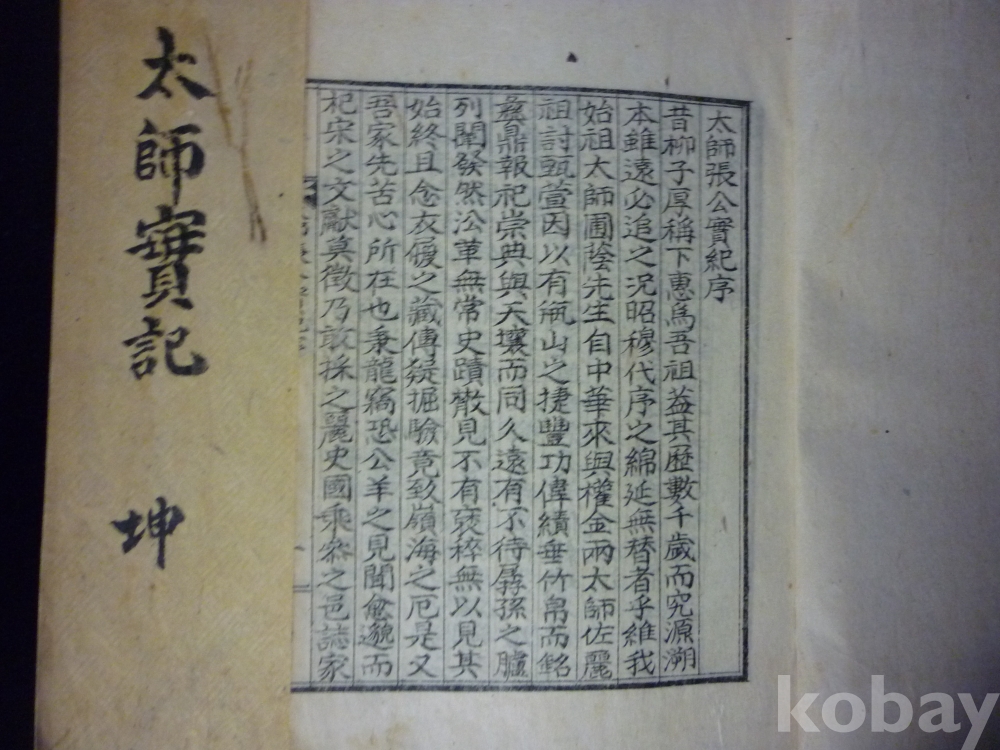 太師實記
坤
太師張公實紀序
昔柳子厚稱下惠爲吾祖葢其歷數千歲而究源溯
本雖遠必追之况昭穆代序之綿延無替者乎維我
始祖太師圃陰先生自中華來與權金兩太師佐麗
祖討甄萱因以有甁山之捷豐功偉績垂竹帛而銘
彝鼎報祀崇典與天壤而同久遠有不待孱孫之臚
列闡發然㳂革無常史蹟散見不有裒稡無以見其
始終且念衣履之藏傳疑掘驗竟致嶺海之厄是又
吾家先苦心所在也秉龍竊恐公羊之見聞愈邈而
杞宋之文獻莫徵乃敢採之麗史國乘叅之邑誌家
kobay